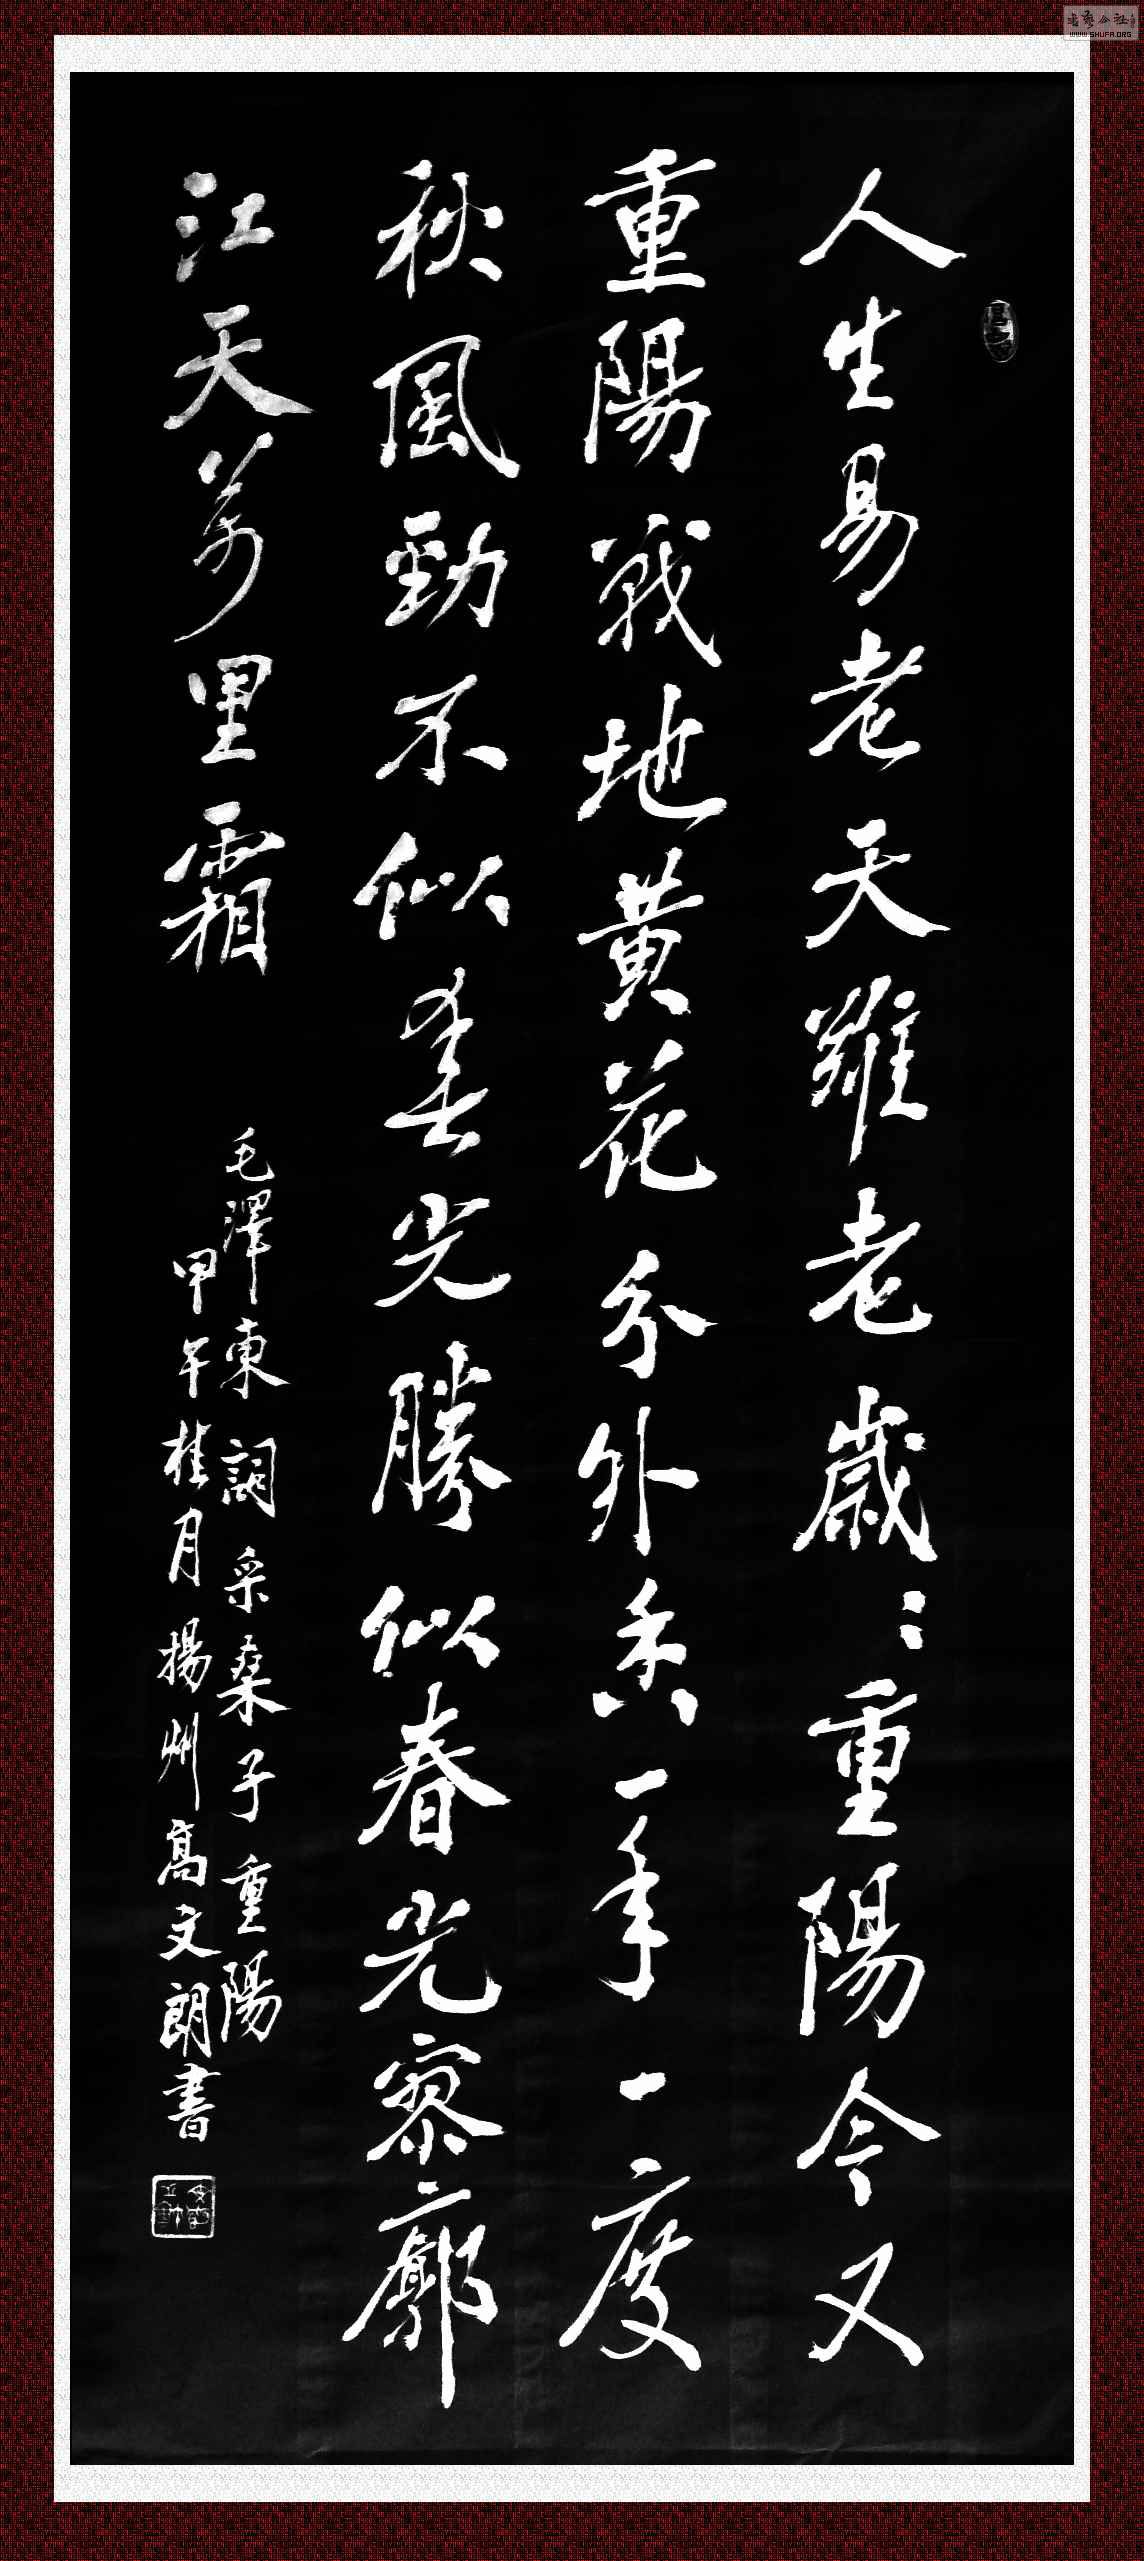 人生易老天難老歲〻重陽今又
重陽戰地黃花分外香一年一度
秋風勁不似春光勝似春光寥廓
江天萬里霜
毛澤東詞采桑子重陽
甲午桂月揚州高文朗書
WWW.SHUFA.ORG